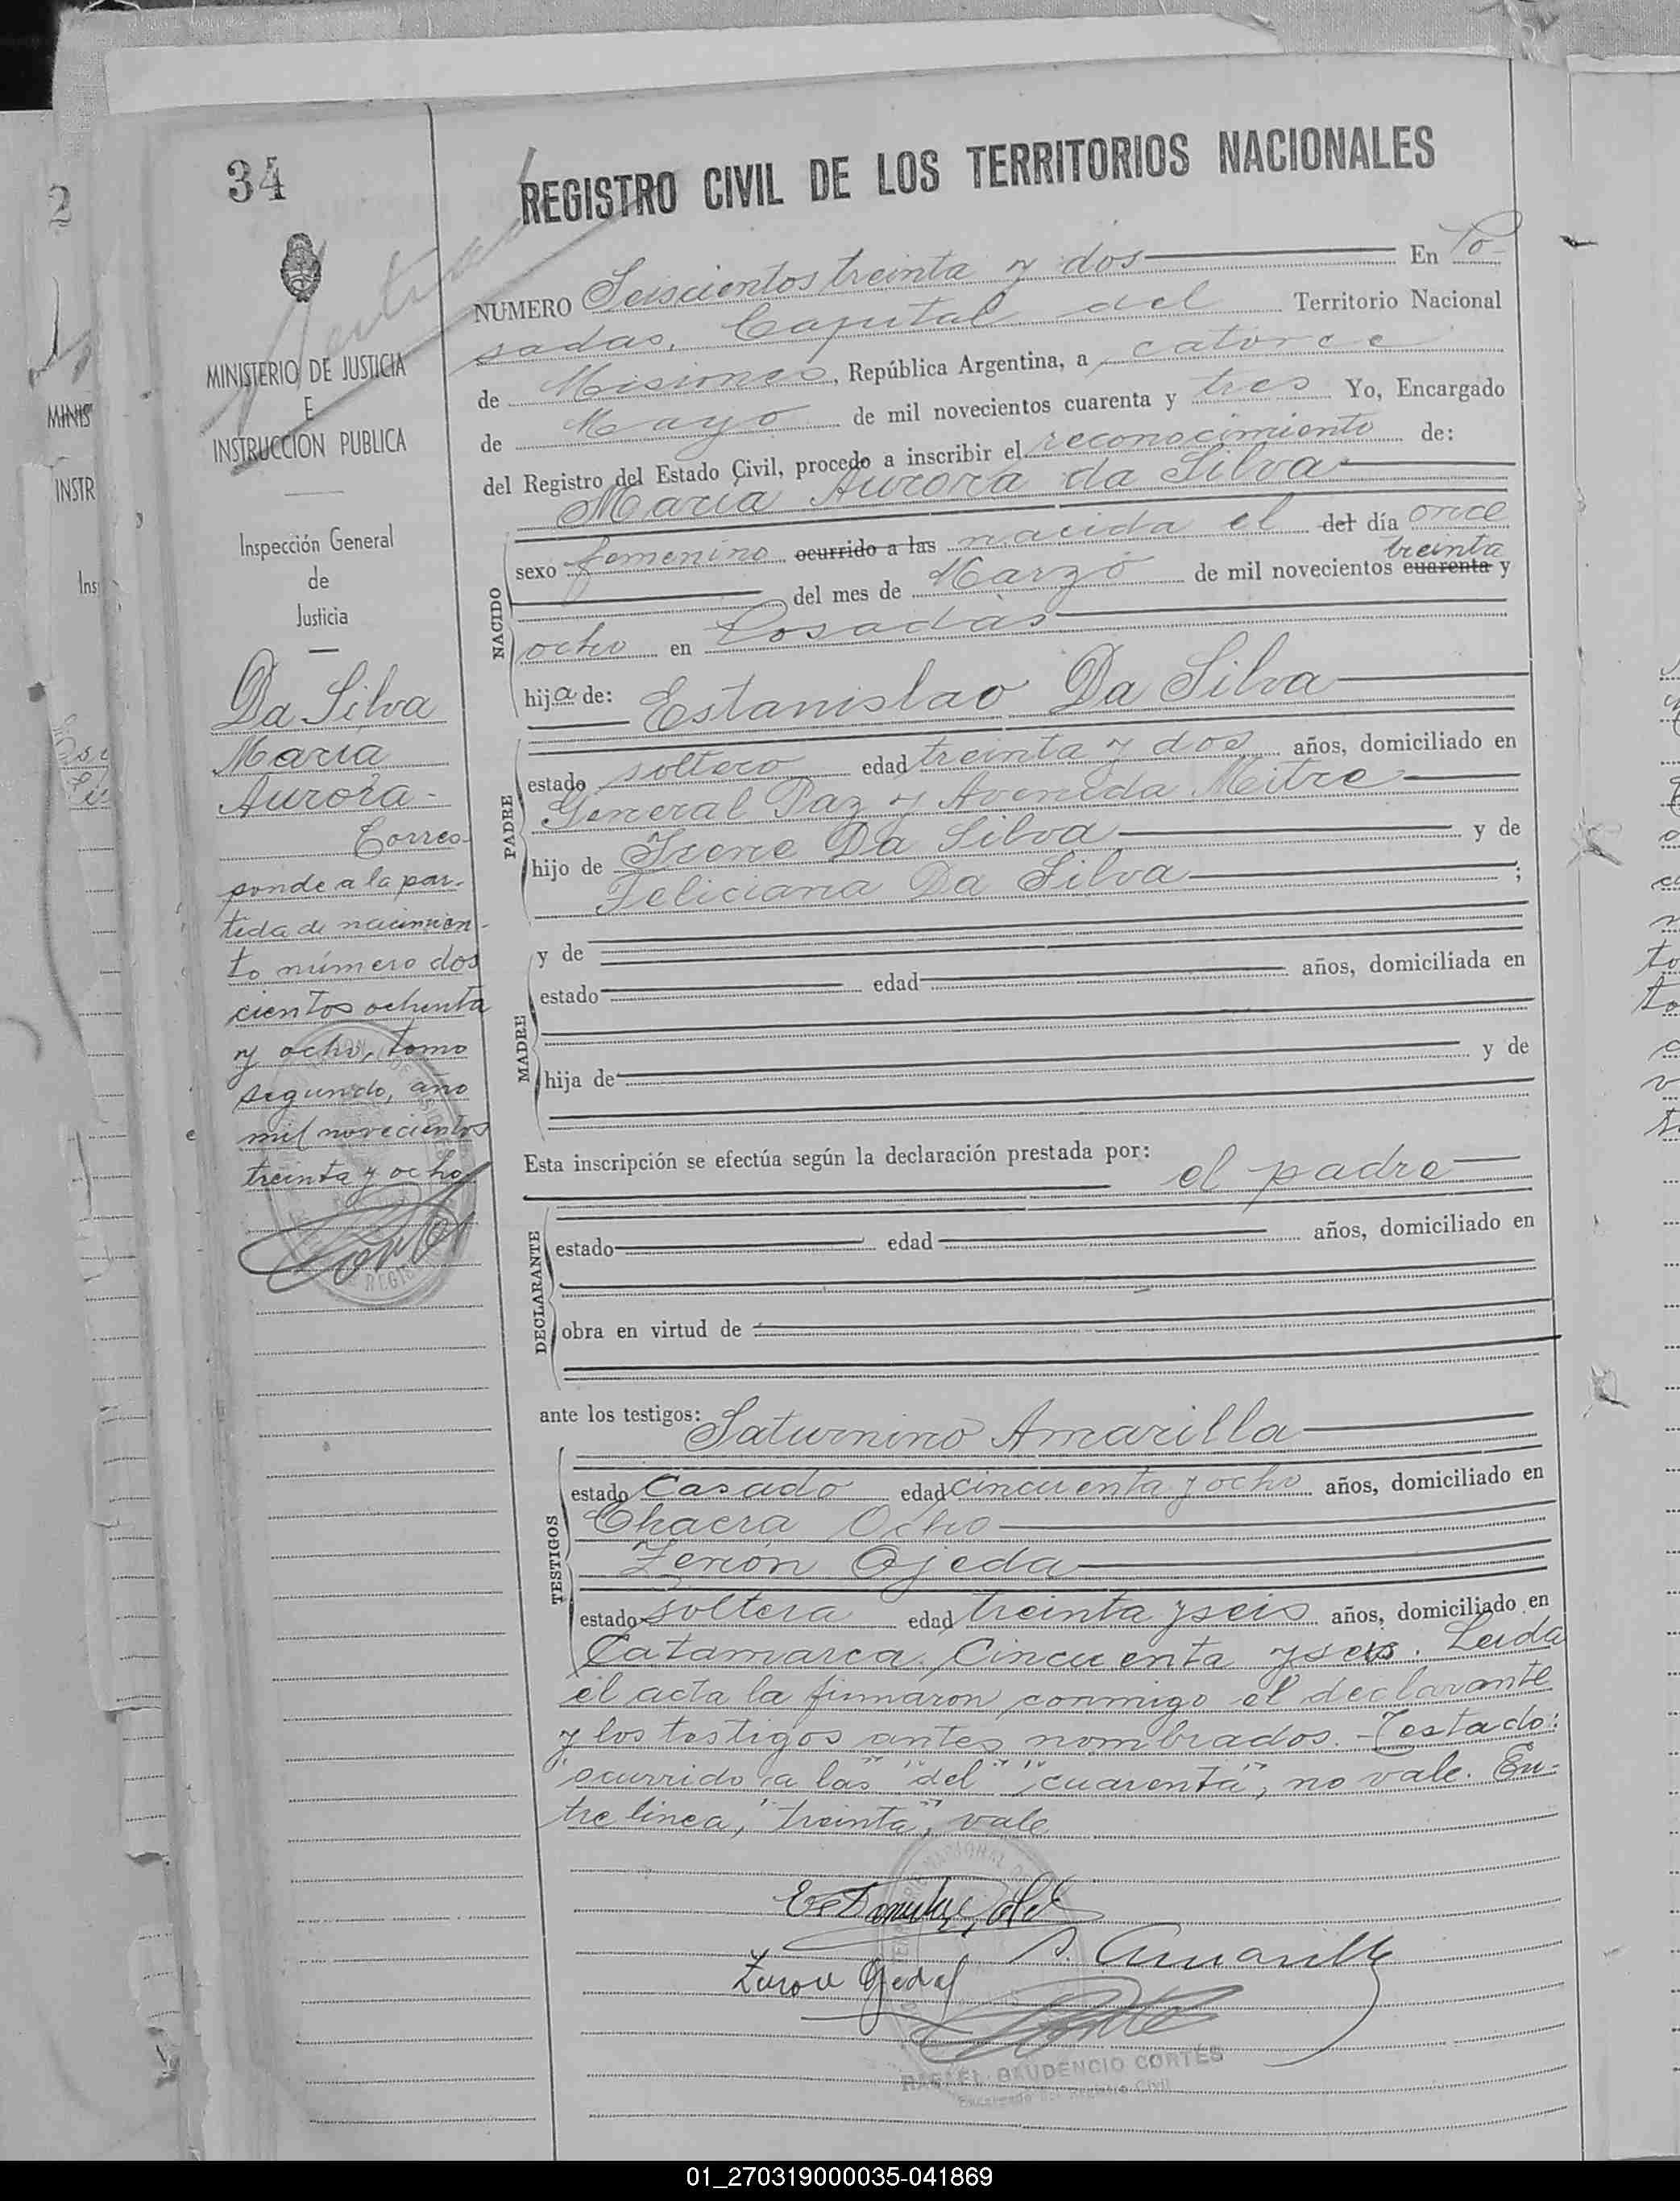 34
MINISTERIO DE JUSTICIA
E
INSTRUCCION PUBLICA
Inspección General
de
Justicia
Da Silva
María
Aurora-
Corres-
ponde a la par-
tida de nacimien-
to número dos
cientos ochenta
y ocho, tomo
segundo, año
mil novecientos
treinta y ocho
REGISTRO CIVIL DE LOS TERRITORIOS NACIONALES
NUMERO Seiscientos treinta y dos En Po-
sadas, Capital del Territorio Nacional
de Misiones, República Argentina, a catorce
de Mayo de mil novecientos cuarenta y tres Yo, Encargado
del Registro del Estado Civil, procedo a inscribir el reconocimiento de:
María Aurora da Silva
NACIDO
sexo femenino ocurrido a las nacida el del día once
treinta
del mes de Marzo de mil novecientos cuarenta y
ocho en Posadas
hija de: Estanislao Da Silva
PADRE
estado soltero edad treinta y dos años, domiciliado en
General Paz y Avenida Mitre
hijo de Irene Da Silva y de
Feliciana Da Silva ;
MADRE
y de
estado edad años, domiciliada en
hija de y de
Esta inscripción se efectúa según la declaración prestada por: el padre
DECLARANTE
estado edad años, domiciliado en
obra en virtud de
ante los testigos: Saturnino Amarilla
TESTIGOS
estado Casado edad cincuenta y ocho años, domiciliado en
Chacra Ocho
Zenón Ojeda
estado soltera edad treinta y seis años, domiciliado en
Catamarca Cincuenta y seis. Leida
el acta la firmaron conmigo el declarante
y los testigos antes nombrados. - Testado:
"ocurrido a las" "del" "cuarenta", no vale. En-
tre linea, "treinta", vale
S. Amarilla
Zenon Ojeda
RAFAEL GAUDENCIO CORTÉS
Encargado del Registro Civil
01_270319000035-041869